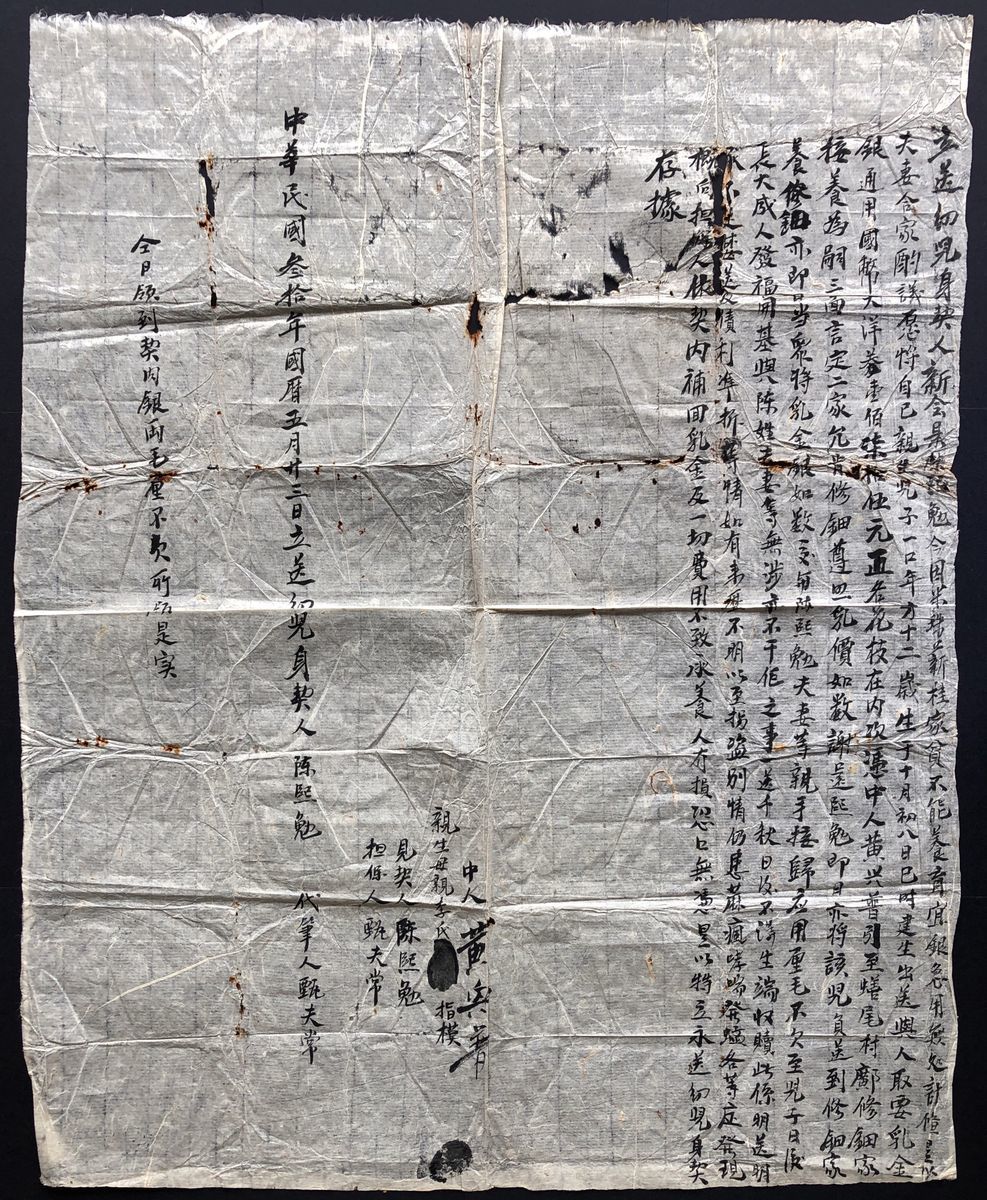 立送幼児身契人新会县陳熙勉今因米珠薪桂家貧不能养育宜銀急用無处計偹是以
夫妻合家酌議愿将自己親生児子一口年方十二歲生于十月初八日巳时建生出送與人取要乳金
銀通用國幣大洋叁壹佰柒拾伍元正启花枝在内改憑中人黄兴普引至蟮尾村鄺修鈿家
接养為嗣三面言定二家允肯修鈿尊照乳價如数謝足熙勉即日亦将該児負送到修鈿家
养修鈿亦即日当眾将乳金銀如数交與陳熙勉夫妻等親手接歸应用厘毛不欠至児子日後
長大成人發福開基與陈姓夫妻等無涉亦不干佢之事一送千秋日後不得生端收贖此係明送明
不是歷送及債利準折等情如有來歷不明以至拐盜别情仍患蔴瘋哮喘發癲各等症發現
概向担保人依契内補回乳金及一切費用不致承養人有損恐口無憑是以特立永送幼児身契
存據
中人 黄兴普
親生母親李氏 指模
見契人 陳熙勉
担保人 甄夫常
代筆人甄夫常
中華民國叁拾年國曆五月廿三日立送幼児身契人 陈熙勉
仝日領到契内銀両毛厘不欠所紹是实